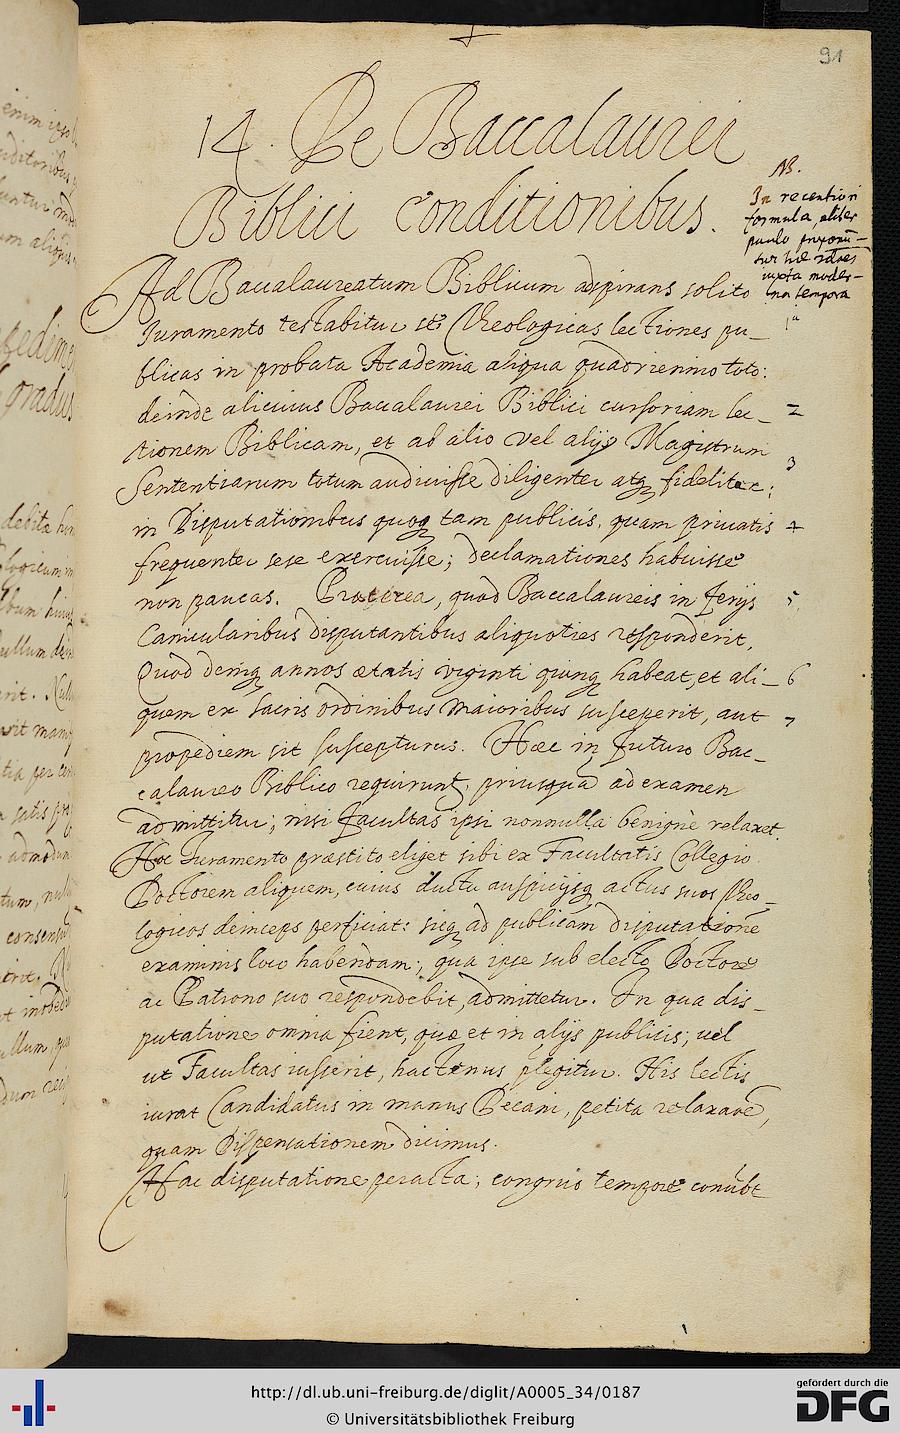 91
14. De Baccalaurei
Biblici Conditionibus.
NB.
In recentiori
formula, aliter
paulo proponū-
tur hae
iuxta moder-
na tempora
Ad Baccalaureatum Biblicum adspirans solito
Iuramento testabitur se Theologicas lectiones pu_ 1ᵃ
blicas in probata Academia aliqua quadriennio toto:
deinde alicuius Baccalaurei Biblici cursoriam lec_ 2
tionem Biblicam, et ab alio vel alijs Magistrum 3
Sententiarum totum audiuisse diligenter atq fideliter;
in Disputationibus quoq tam publicis, quam priuatis 4
frequenter sese exercuisse; declamationes habuisse
non paucas. Praeterea, quod Baccalaureis in ferijs 5.
Canicularibus disputantibus aliquoties responderit.
Quod deniq annos aetatis viginti quinq habeat, et ali_ 6
quem ex sacris ordinibus maioribus susceperit, aut 7
propediem sit suscepturus. Haec in futuro Bac_
calaureo Biblico requirunt, priusquā ad examen
admittitur; nisi facultas ipsi nonnulla benignè relaxet.
Hoc Iuramento praestito eliget sibi ex Facultatis Collegio
Doctorem aliquem, cuius ductu auspicijsq actus suos Theo_
logicos deinceps perficiat: sicq ad publicam disputationē
examinis loco habendam; qua ipse sub electo Doctore
ac Patrono suo respondebit, admittetur. In qua dis_
putatione omnia fient, quae et in alijs publicis; uel
ut Facultas iusserit, hactenus His lectis
iurat Candidatus in manus Decani, petita relaxāōe,
quam Dispensationem dicimus.
Hac disputatione peracta; congruo tempore
http://dl.ub.uni-freiburg.de/diglit/A0005_34/0187
© Universitätsbibliothek Freiburg
gefördert durch die
DFG